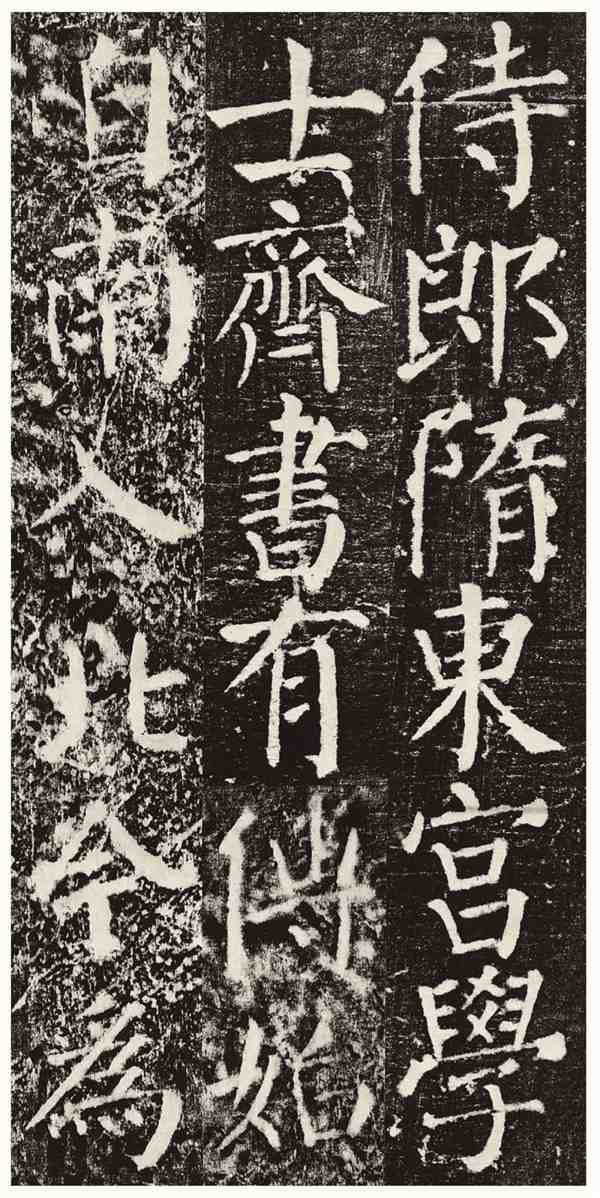 侍郎隋東宮學
士齊書有傳始
自南入北今為